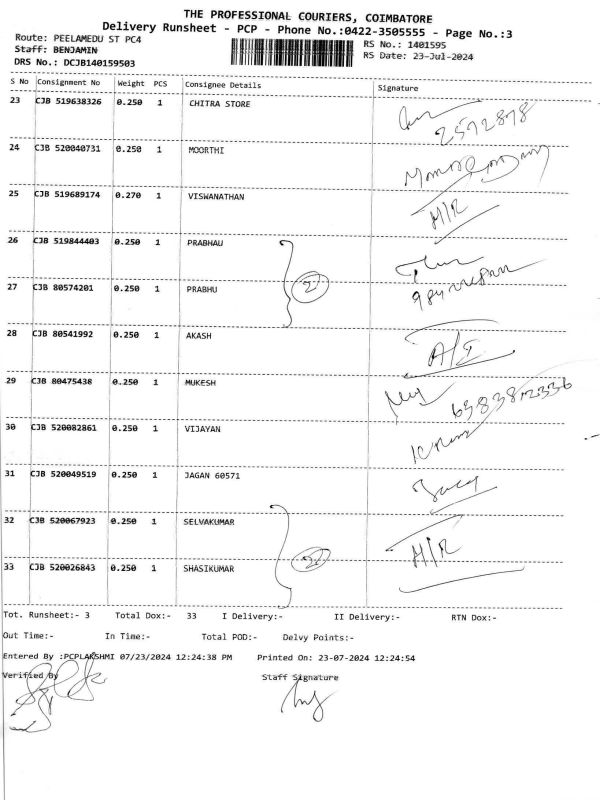 THE PROFESSIONAL COURIERS, COIMBATORE
Delivery Runsheet - PCP - Phone No.:0422-3505555 - Page No.:3
Route: PEELAMEDU ST PC4
RS No.: 1401595
Staff: BENJAMIN
RS Date: 23-Jul-2024
DRS No.: DCJB140159503
S No Consignment No Weight PCS Consignee Details Signature
23 CJB 519638326 0.250 1 CHITRA STORE
2572878
24 CJB 520040731 0.250 1 MOORTHI
25 CJB 519689174 0.270 1 VISWANATHAN
H/R
26 CJB 519844403 0.250 1 PRABHAU
2
27 CJB 80574201 0.250 1 PRABHU
28 CJB 80541992 0.250 1 AKASH
A/I
29 CJB 80475438 0.250 1 MUKESH
30 CJB 520082861 0.250 1 VIJAYAN
31 CJB 520049519 0.250 1 JAGAN 60571
32 CJB 520067923 0.250 1 SELVAKUMAR
H/R
2
33 CJB 520026843 0.250 1 SHASIKUMAR
Tot. Runsheet:- 3 Total Dox:- 33 I Delivery:- II Delivery:- RTN Dox:-
Out Time:- In Time:- Total POD:- Delvy Points:-
Entered By :PCPLAKSHMI 07/23/2024 12:24:38 PM Printed On: 23-07-2024 12:24:54
Verified By Staff Signature